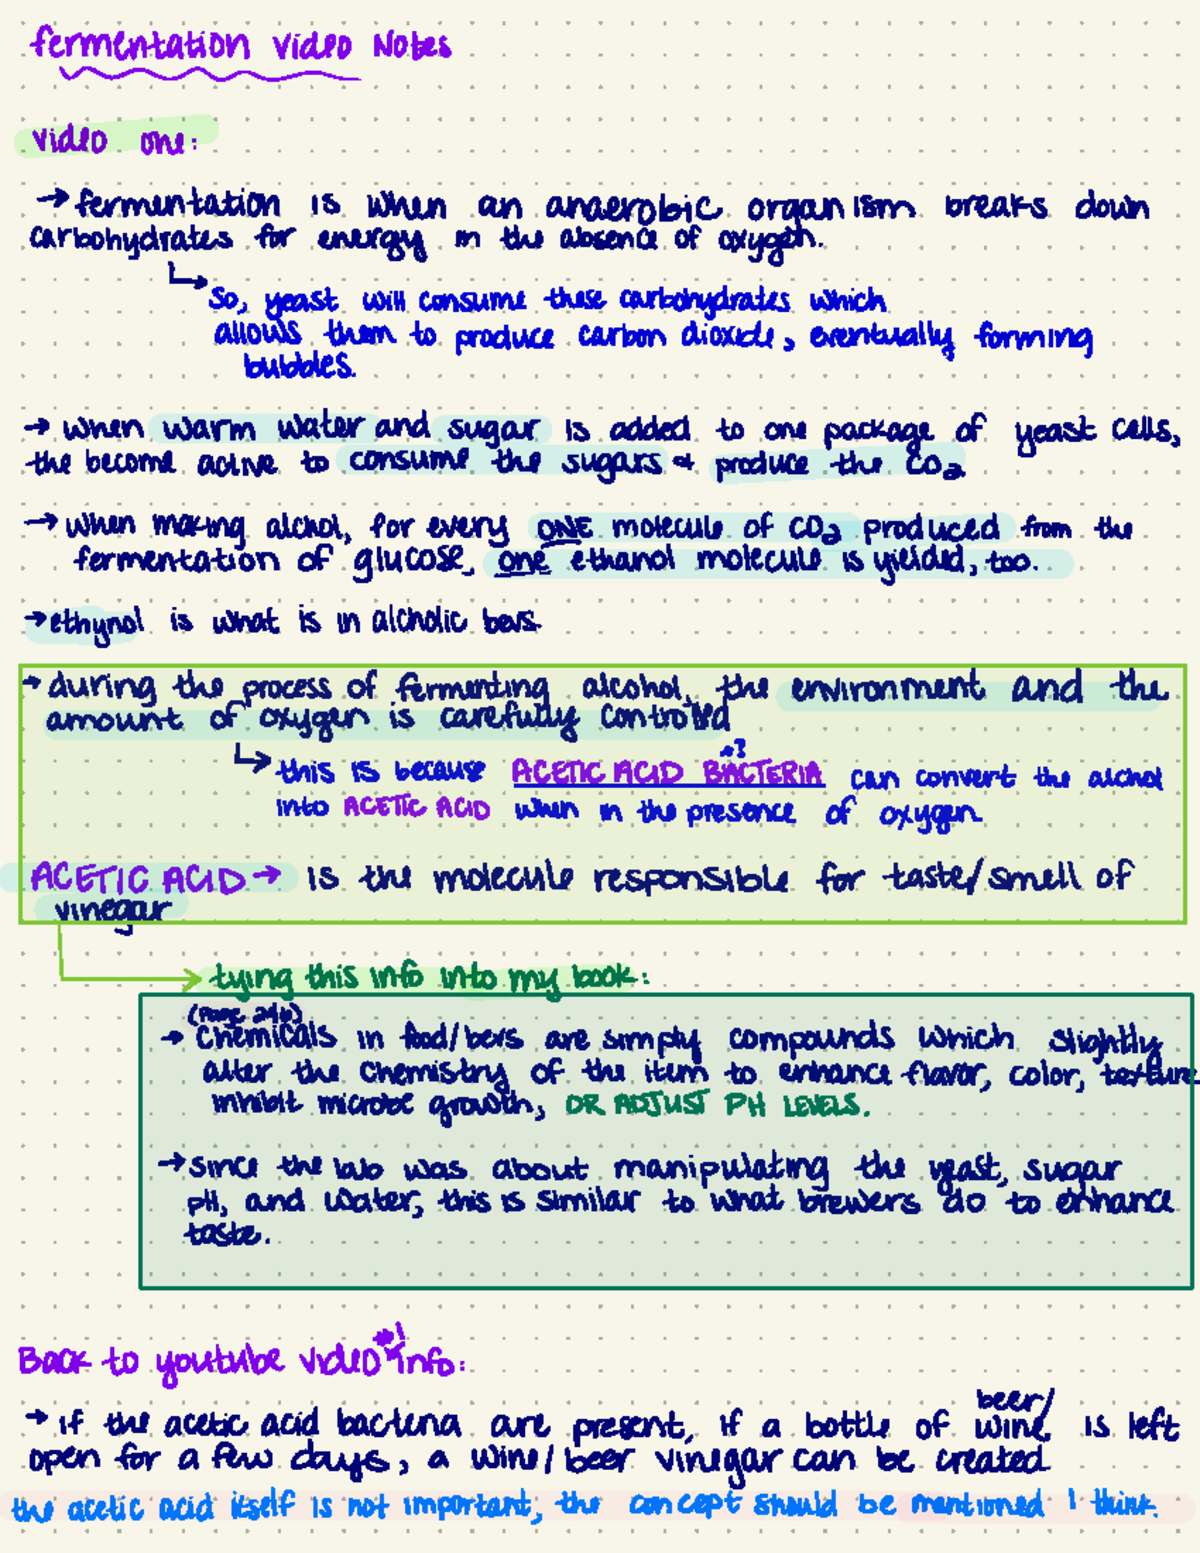 fermentation video Notes
video one:
→ fermentation is when an anaerobic organism breaks down
carbohydrates for energy in the absence of oxygen.
So, yeast will consume these carbohydrates which
allows them to produce carbon dioxide, eventually forming
bubbles.
→ when warm water and sugar is added to one package of yeast cells,
the become active to consume the sugars & produce the CO2
→ when making alchol, for every ONE molecule of CO2 produced from the
fermentation of glucose, one ethanol molecule is yielded, too.
→ ethynol is what is in alcholic bevs.
→ during the process of fermenting alcohol, the environment and the
amount of oxygen is carefully controlled
this is because ACETIC ACID BACTERIA can convert the alchol
into ACETIC ACID when in the presence of oxygen.
ACETIC ACID → is the molecule responsible for taste/smell of
vinegar
tying this info into my book:
(page 246)
→ Chemicals in food/bevs are simply compounds which slightly
alter the chemistry of the item to enhance flavor, color, texture
inhibit microbe growth, OR ADJUST PH LEVELS.
→ since the lab was about manipulating the yeast, sugar
pH, and water, this is similar to what brewers do to enhance
taste.
Back to youtube video #1 info:
→ if the acetic acid bacteria are present, if a bottle of beer/ wine is left
open for a few days, a wine/beer vinegar can be created
the acetic acid itself is not important, the concept should be mentioned I think.